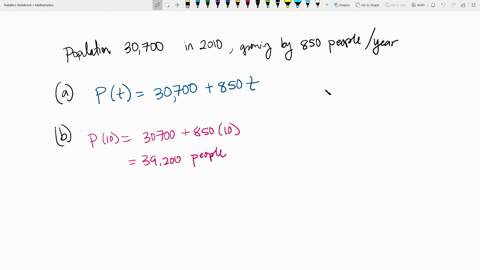 Natalie's Notebook • Mathematics
Shapes
Ink to Shape
Ink to Math
Population 30,700 in 2010, growing by 850 people/year
(a) P(t) = 30,700 + 850t
(b) P(10) = 30700 + 850(10)
= 39,200 people